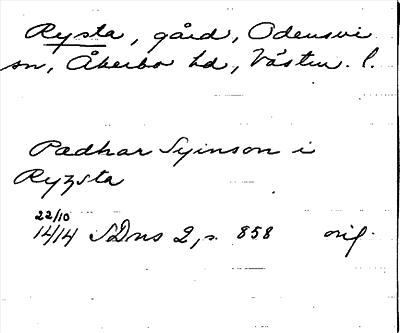 Rysta, gård, Odensvi
sn, Åkerbo hd, Västm. l.
Pædhar Syinson i
Ryzsta
22/10
1414 SDns 2, s. 858 orig.